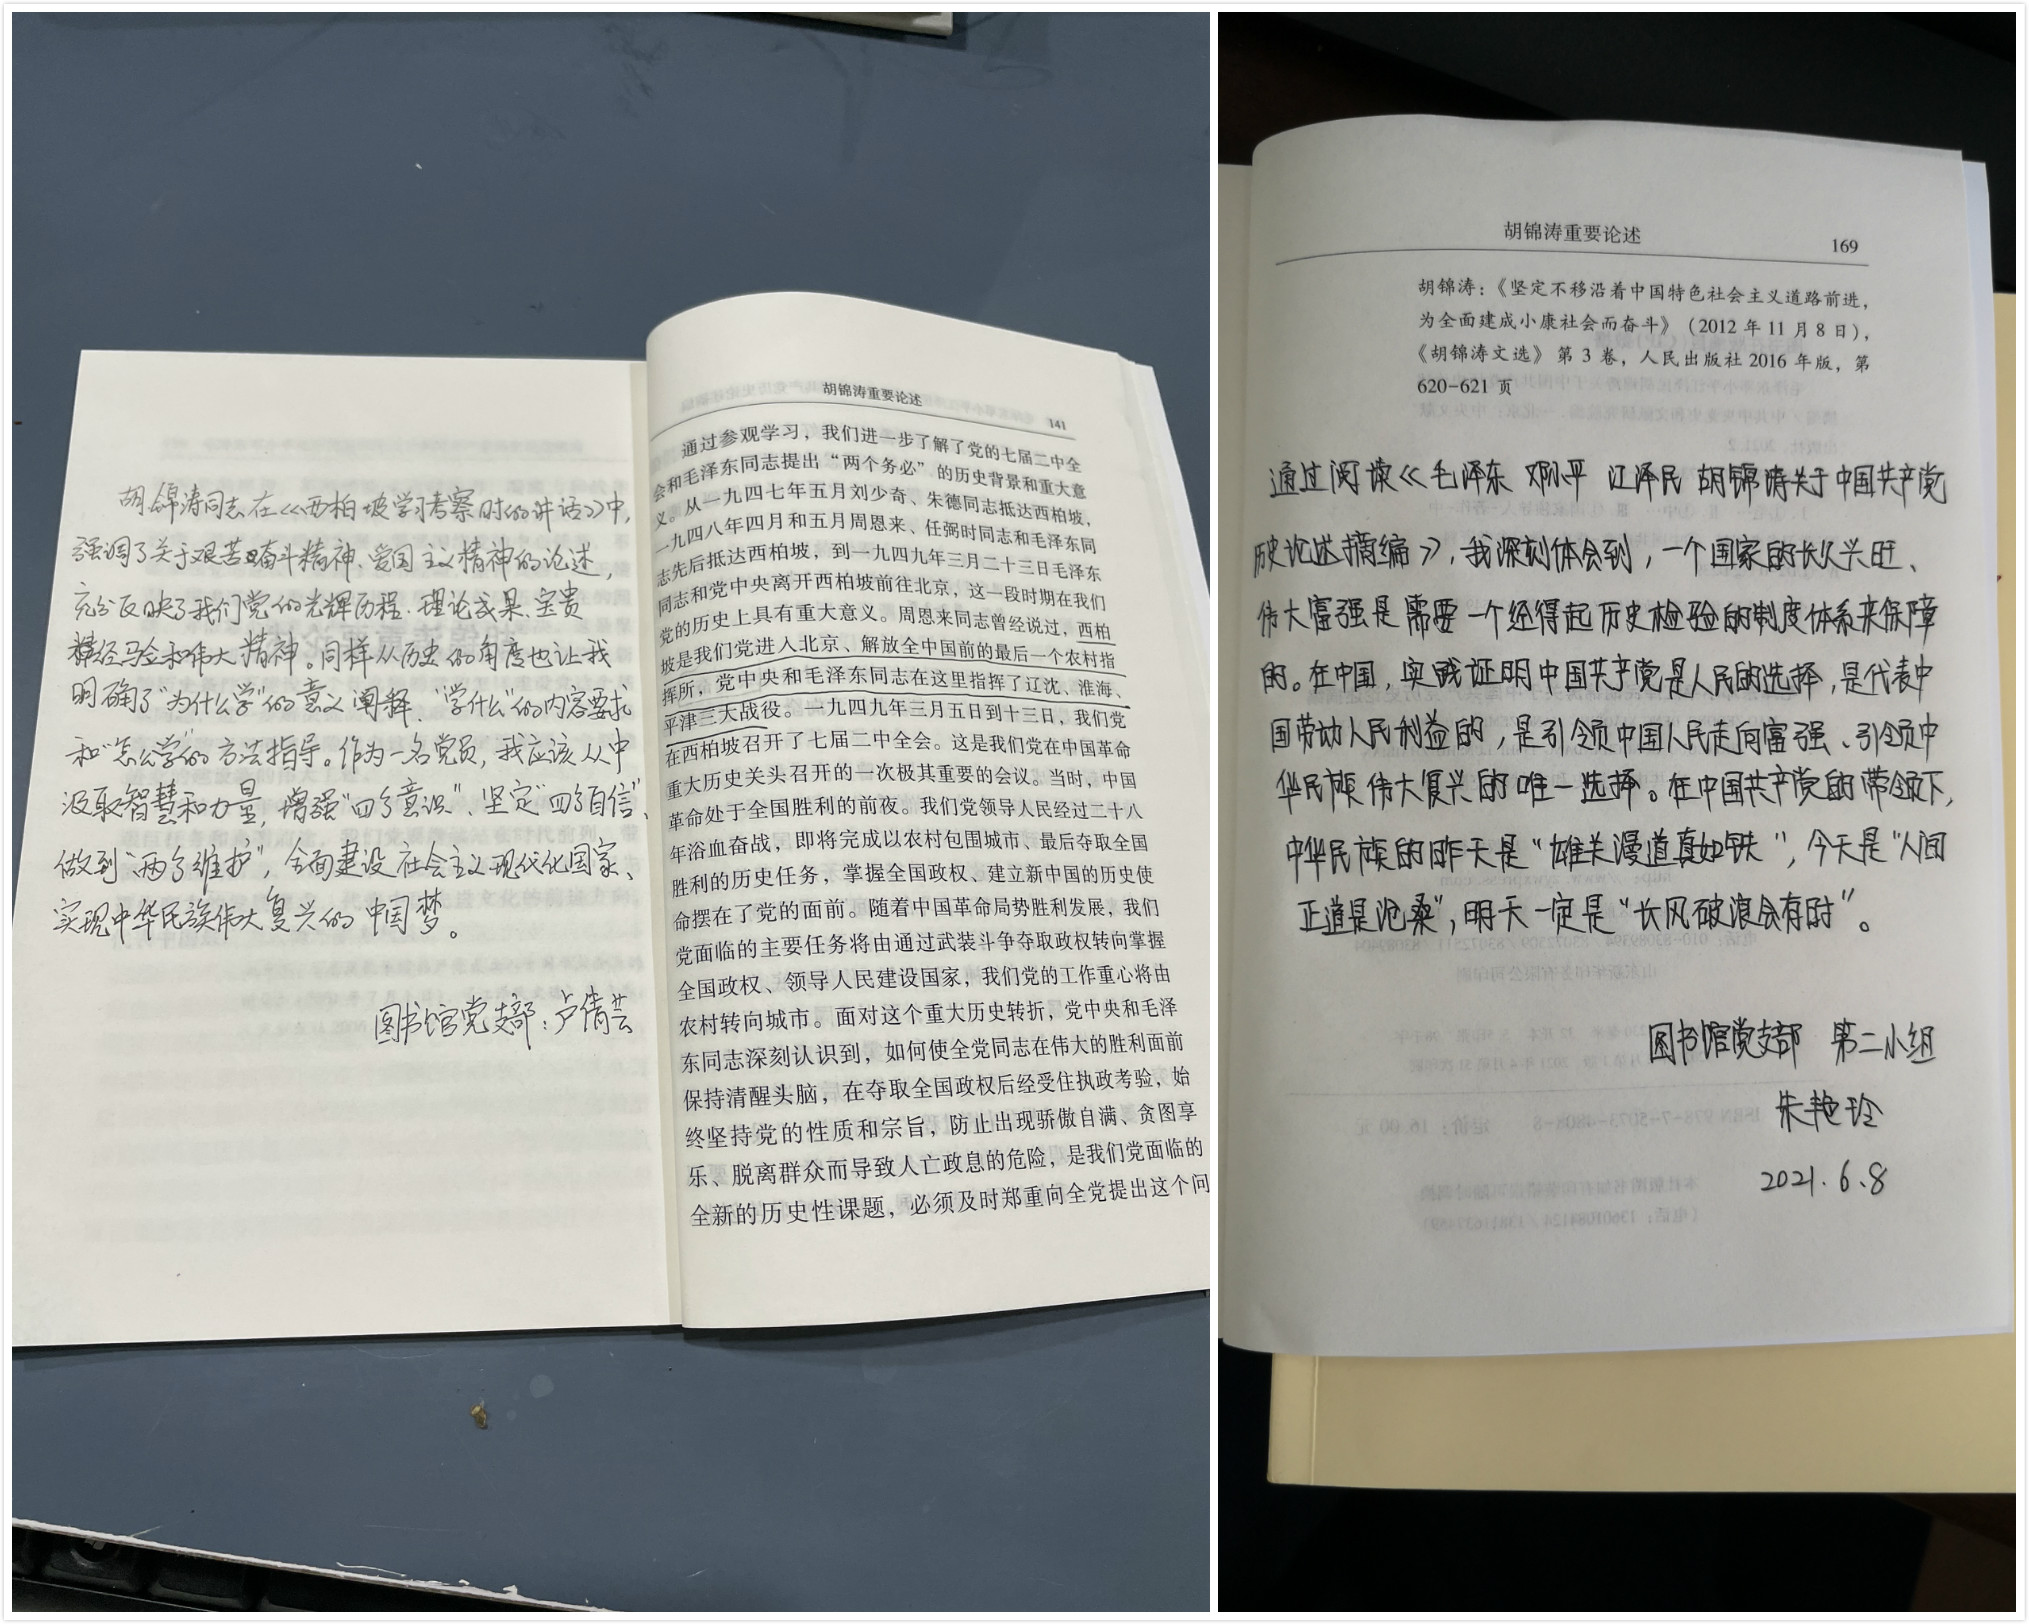 胡锦涛同志在《西柏坡学习考察时的讲话》中，
强调了关于艰苦奋斗精神、爱国主义精神的论述，
充分反映了我们党的光辉历程、理论成果、宝贵
经验和伟大精神。同样从历史的角度也让我
明确了“为什么学”的意义阐释、“学什么”的内容要求
和“怎么学”的方法指导。作为一名党员，我应该从中
汲取智慧和力量，增强“四个意识”、坚定“四个自信”、
做到“两个维护”，全面建设社会主义现代化国家、
实现中华民族伟大复兴的中国梦。
图书馆党支部：卢倩芸
胡锦涛重要论述 141
通过参观学习，我们进一步了解了党的七届二中全
会和毛泽东同志提出“两个务必”的历史背景和重大意
义。从一九四七年五月刘少奇、朱德同志抵达西柏坡，
一九四八年四月和五月周恩来、任弼时同志和毛泽东同
志先后抵达西柏坡，到一九四九年三月二十三日毛泽东
同志和党中央离开西柏坡前往北京，这一段时期在我们
党的历史上具有重大意义。周恩来同志曾经说过，西柏
坡是我们党进入北京、解放全中国前的最后一个农村指
挥所，党中央和毛泽东同志在这里指挥了辽沈、淮海、
平津三大战役。一九四九年三月五日到十三日，我们党
在西柏坡召开了七届二中全会。这是我们党在中国革命
重大历史关头召开的一次极其重要的会议。当时，中国
革命处于全国胜利的前夜。我们党领导人民经过二十八
年浴血奋战，即将完成以农村包围城市、最后夺取全国
胜利的历史任务，掌握全国政权、建立新中国的历史使
命摆在了党的面前。随着中国革命局势胜利发展，我们
党面临的主要任务将由通过武装斗争夺取政权转向掌握
全国政权、领导人民建设国家，我们党的工作重心将由
农村转向城市。面对这个重大历史转折，党中央和毛泽
东同志深刻认识到，如何使全党同志在伟大的胜利面前
保持清醒头脑，在夺取全国政权后经受住执政考验，始
终坚持党的性质和宗旨，防止出现骄傲自满、贪图享
乐、脱离群众而导致人亡政息的危险，是我们党面临的
全新的历史性课题，必须及时郑重向全党提出这个问
胡锦涛重要论述 169
胡锦涛：《坚定不移沿着中国特色社会主义道路前进，
为全面建成小康社会而奋斗》（2012年11月8日），
《胡锦涛文选》第3卷，人民出版社2016年版，第
620-621页
通过阅读《毛泽东 邓小平 江泽民 胡锦涛关于中国共产党
历史论述摘编》，我深刻体会到，一个国家的长久兴旺、
伟大富强是需要一个经得起历史检验的制度体系来保障
的。在中国，实践证明中国共产党是人民的选择，是代表中
国劳动人民利益的，是引领中国人民走向富强、引领中
华民族伟大复兴的唯一选择。在中国共产党的带领下，
中华民族的昨天是“雄关漫道真如铁”，今天是“人间
正道是沧桑”，明天一定是“长风破浪会有时”。
图书馆党支部 第二小组
朱艳玲
2021.6.8